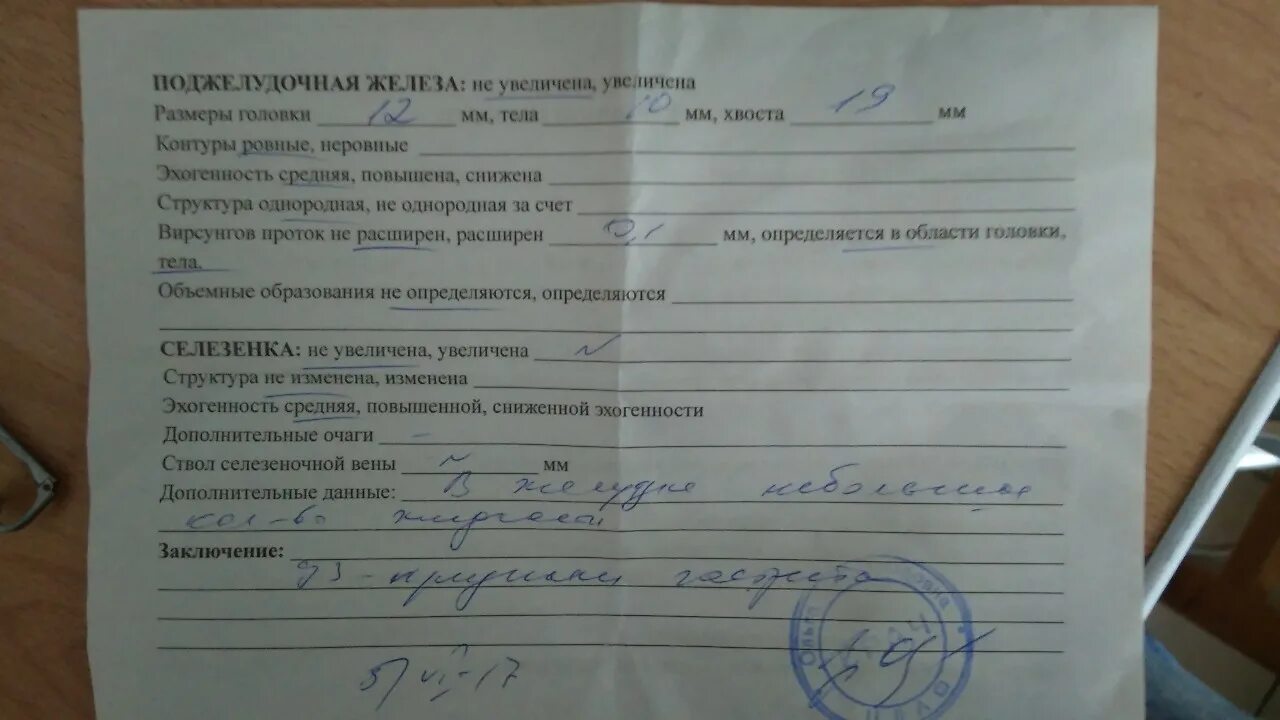 ПОДЖЕЛУДОЧНАЯ ЖЕЛЕЗА: не увеличена, увеличена
Размеры головки 12 мм, тела 10 мм, хвоста 19 мм
Контуры ровные, неровные
Эхогенность средняя, повышена, снижена
Структура однородная, не однородная за счет
Вирсунгов проток не расширен, расширен 0,1 мм, определяется в области головки,
тела.
Объемные образования не определяются, определяются
СЕЛЕЗЕНКА: не увеличена, увеличена N
Структура не изменена, изменена
Эхогенность средняя, повышенной, сниженной эхогенности
Дополнительные очаги –
Ствол селезеночной вены N мм
Дополнительные данные: В желудке небольшое
кол-во жидкости
Заключение:
УЗ-признаки гастрита
5/VI-17
Ольга
ВРАЧ